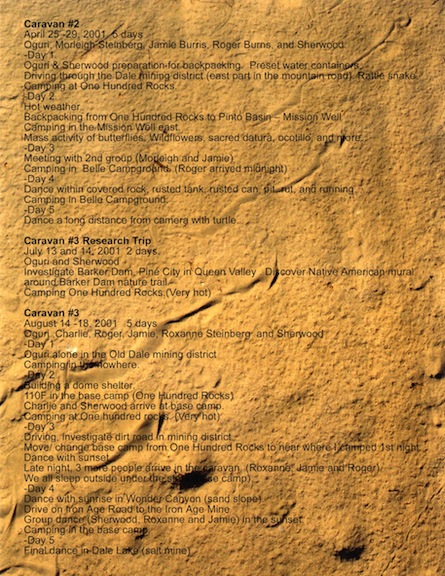 Caravan #2
April 25 -29, 2001 5 days
Oguri, Morleigh Steinberg, Jamie Burris, Roger Burns, and Sherwood
-Day 1
Oguri & Sherwood preparation for backpacking. Preset water containers.
Driving through the Dale mining district (east part in the mountain road) Rattle snake.
Camping at One Hundred Rocks
-Day 2
Hot weather.
Backpacking from One Hundred Rocks to Pinto Basin – Mission Well
Camping in the Mission Well east.
Mass activity of butterflies, Wildflowers, sacred datura, ocotillo, and more.
-Day 3
Meeting with 2nd group (Morleigh and Jamie)
Camping in Belle Campground. (Roger arrived midnight)
-Day 4
Dance within covered rock, rusted tank, rusted can, pit, rut, and running.
Camping In Belle Campground.
-Day 5
Dance a long distance from camera with turtle.
Caravan #3 Research Trip
July 13 and 14, 2001 2 days.
Oguri and Sherwood
Investigate Barker Dam, Pine City in Queen Valley. Discover Native American mural
around Barker Dam nature trail.
Camping One Hundred Rocks.(Very hot)
Caravan #3
August 14 -18, 2001 5 days
Oguri, Charlie, Roger, Jamie, Roxanne Steinberg, and Sherwood
-Day 1
Oguri alone in the Old Dale mining district
Camping in the nowhere.
-Day 2
Building a dome shelter.
110F in the base camp (One Hundred Rocks)
Charlie and Sherwood arrive at base camp.
Camping at One hundred rocks. (Very hot)
-Day 3
Driving, Investigate dirt road in mining district
Move/ change base camp from One Hundred Rocks to near where I camped 1st night.
Dance with sunset
Late night, 3 more people arrive in the caravan. (Roxanne, Jamie and Roger)
We all sleep outside under the camp)
-Day 4
Dance with sunrise in Wonder Canyon (sand slope)
Drive on Iron Age Road to the Iron Age Mine
Group dance (Sherwood, Roxanne and Jamie) in the sunset
Camping in the base camp
-Day 5
Final dance in Dale Lake (salt mine)